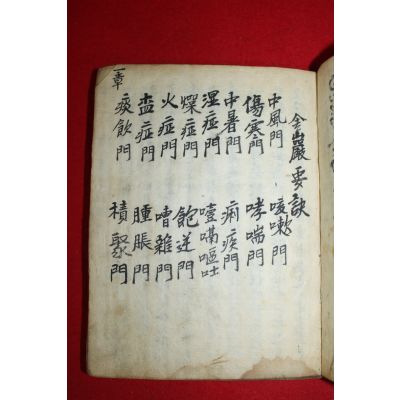 舍巖要訣
中風門 咳嗽門
傷寒門 哮喘門
中暑門 痢疾門
湿症門 噎嗝嘔吐
燥症門 飽逆門
火症門 嘈雜門
症門 腫脹門
痰飮門 積聚門
一章